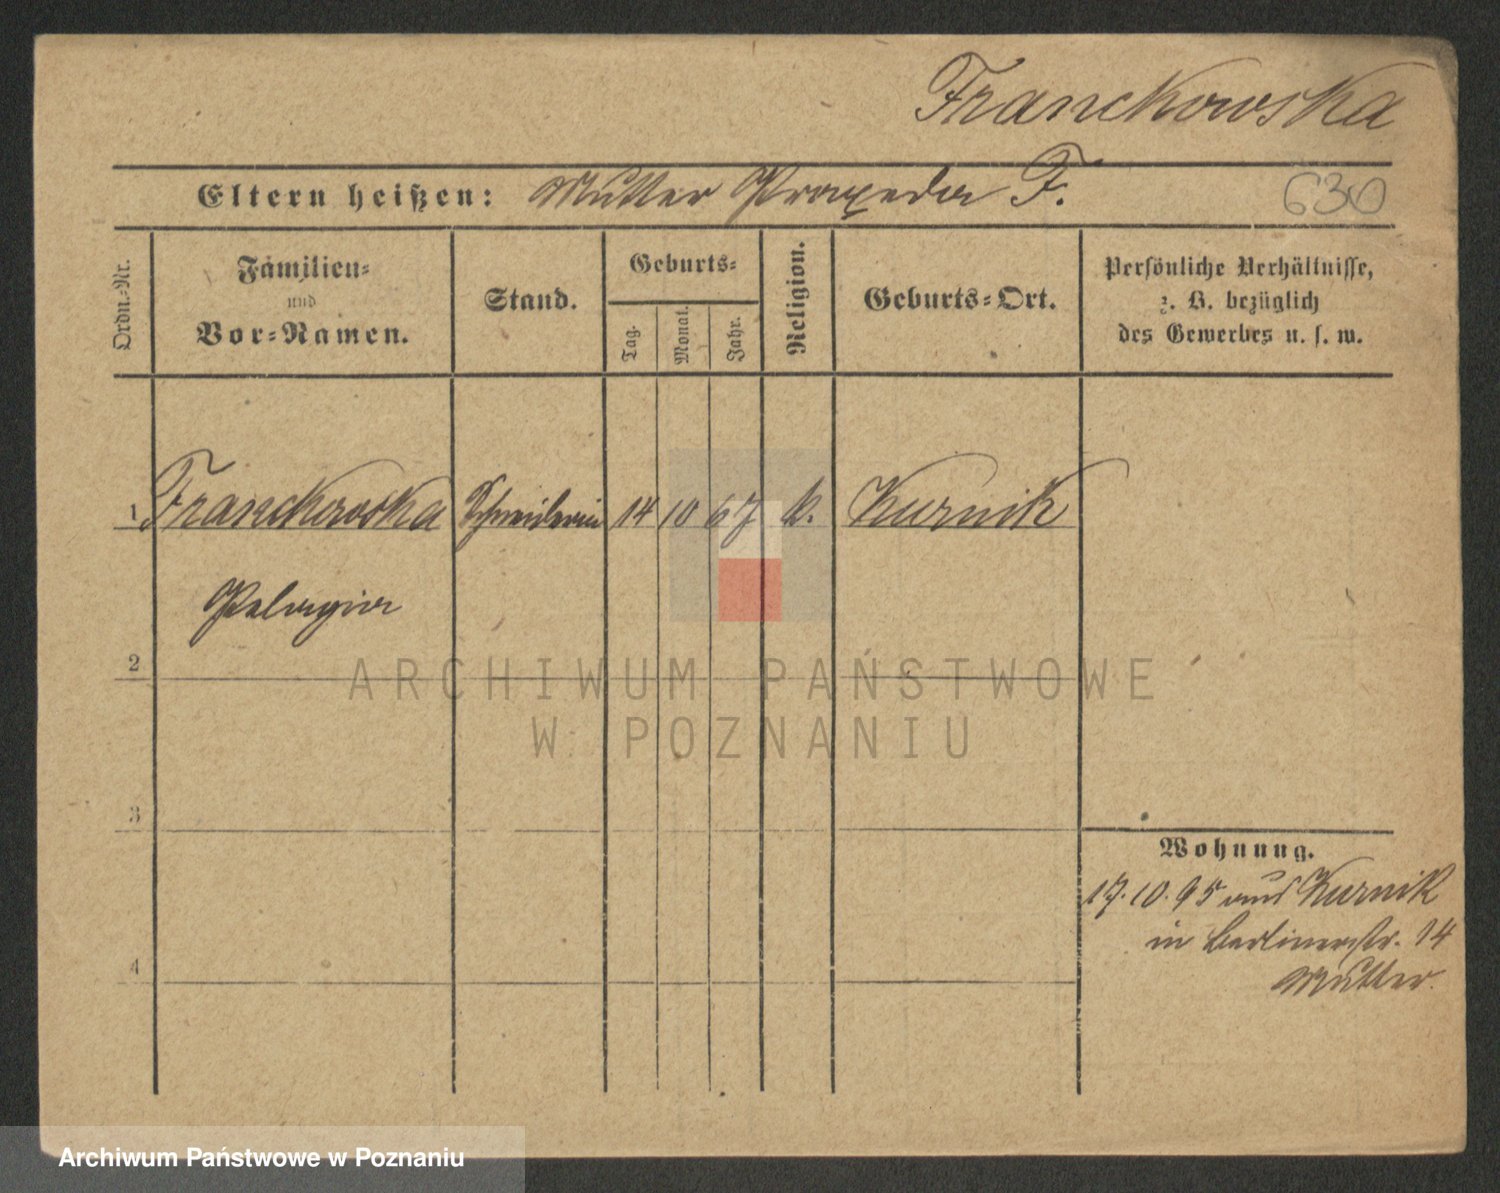 Franckowska
Eltern heißen: Mutter Praxeda F.
630
Ordn.-Nr.
Familien-
und
Vor-Namen.
Stand.
Geburts-
Tag.
Monat.
Jahr.
Religion.
Geburts-Ort.
Persönliche Verhältnisse,
z. B. bezüglich
des Gewerbes u. s. w.
1 Franckowska Schneiderin 14 10 67 k. Kurnik
Pelagia
2
3
4
Wohnung.
17.10.95 aus Kurnik
in Berlinerstr. 14
Mutter.
ARCHIWUM PAŃSTWOWE
W POZNANIU
Archiwum Państwowe w Poznaniu